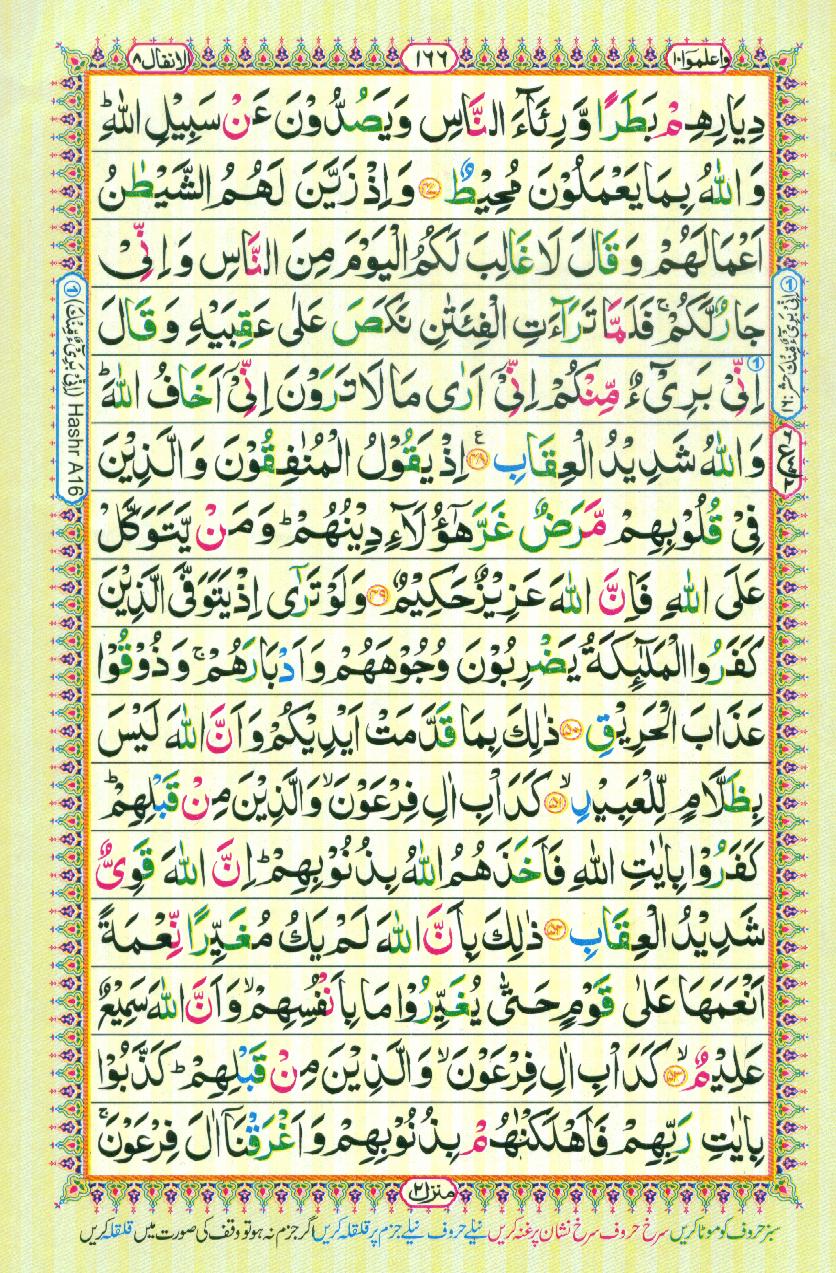 واعلموا ١٠
١٦٦
الانفال ٨
دِيَارِهِمْ بَطَرًا وَّرِئَآءَ النَّاسِ وَيَصُدُّوْنَ عَنْ سَبِيْلِ اللّٰهِ ؕ
وَاللّٰهُ بِمَا يَعْمَلُوْنَ مُحِيْطٌ ﴿۴۷﴾ وَاِذْ زَيَّنَ لَهُمُ الشَّيْطٰنُ
اَعْمَالَهُمْ وَقَالَ لَا غَالِبَ لَكُمُ الْيَوْمَ مِنَ النَّاسِ وَاِنِّىْ
جَارٌ لَّكُمْ ۚ فَلَمَّا تَرَآءَتِ الْفِئَتٰنِ نَكَصَ عَلٰى عَقِبَيْهِ وَقَالَ
اِنِّىْ بَرِىْٓءٌ مِّنْكُمْ اِنِّىْٓ اَرٰى مَا لَا تَرَوْنَ اِنِّىْٓ اَخَافُ اللّٰهَ ؕ
وَاللّٰهُ شَدِيْدُ الْعِقَابِ ﴿۴۸﴾ اِذْ يَقُوْلُ الْمُنٰفِقُوْنَ وَالَّذِيْنَ
فِىْ قُلُوْبِهِمْ مَّرَضٌ غَرَّ هٰٓؤُلَآءِ دِيْنُهُمْ ؕ وَمَنْ يَّتَوَكَّلْ
عَلَى اللّٰهِ فَاِنَّ اللّٰهَ عَزِيْزٌ حَكِيْمٌ ﴿۴۹﴾ وَلَوْ تَرٰٓى اِذْ يَتَوَفَّى الَّذِيْنَ
كَفَرُوا الْمَلٰٓئِكَةُ يَضْرِبُوْنَ وُجُوْهَهُمْ وَاَدْبَارَهُمْ ۚ وَذُوْقُوْا
عَذَابَ الْحَرِيْقِ ﴿۵۰﴾ ذٰلِكَ بِمَا قَدَّمَتْ اَيْدِيْكُمْ وَاَنَّ اللّٰهَ لَيْسَ
بِظَلَّامٍ لِّلْعَبِيْدِ ۙ﴿۵۱﴾ كَدَاْبِ اٰلِ فِرْعَوْنَ ۙ وَالَّذِيْنَ مِنْ قَبْلِهِمْ ؕ
كَفَرُوْا بِاٰيٰتِ اللّٰهِ فَاَخَذَهُمُ اللّٰهُ بِذُنُوْبِهِمْ ؕ اِنَّ اللّٰهَ قَوِىٌّ
شَدِيْدُ الْعِقَابِ ﴿۵۲﴾ ذٰلِكَ بِاَنَّ اللّٰهَ لَمْ يَكُ مُغَيِّرًا نِّعْمَةً
اَنْعَمَهَا عَلٰى قَوْمٍ حَتّٰى يُغَيِّرُوْا مَا بِاَنْفُسِهِمْ ۙ وَاَنَّ اللّٰهَ سَمِيْعٌ
عَلِيْمٌ ۙ﴿۵۳﴾ كَدَاْبِ اٰلِ فِرْعَوْنَ ۙ وَالَّذِيْنَ مِنْ قَبْلِهِمْ ؕ كَذَّبُوْا
بِاٰيٰتِ رَبِّهِمْ فَاَهْلَكْنٰهُمْ بِذُنُوْبِهِمْ وَاَغْرَقْنَآ اٰلَ فِرْعَوْنَ ۚ
① اِنِّىْ بَرِىْٓءٌ مِّنْكَ حشر: ١٦
① (اِنِّىْ بَرِىْٓءٌ مِّنْكَ) Hashr A16
منزل ٢
سبز حروف کو موٹا کریں سرخ حروف سرخ نشان پر غنہ کریں نیلے حروف نیلے جزم پر قلقلہ کریں اگر جزم نہ ہو تو وقف کی صورت میں قلقلہ کریں